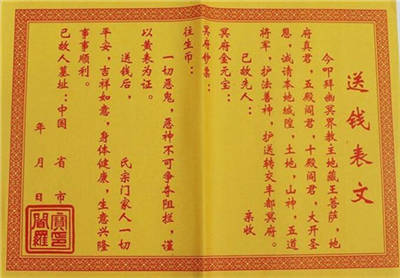 送钱表文
今叩拜幽冥界教主地藏王菩萨,地
府真君,五殿阎君,十殿阎君,大开圣
恩,诚请本地城隍,土地,山神,五道
将军,护法善神,护送转交丰都冥府。
已故先人: 亲收
冥府金元宝:
冥府钞票:
往生币:
一切恶鬼,恶神不可争夺阻拦,谨
以黄表为证。
送钱后, 氏宗门家人一切
平安,吉祥如意,身体健康,生意兴隆
事事顺利。
已故人墓址:中国 省 市
年 月 日
阎罗宝印